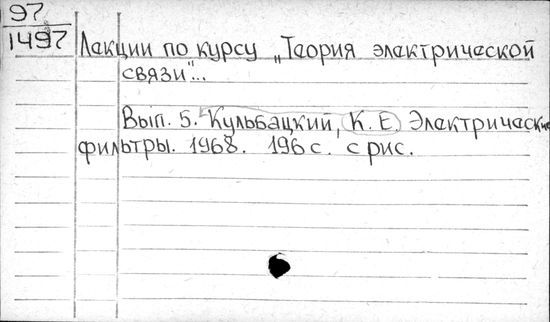 97
1497
Лекции по курсу „Теория электрической
связи"...
Вып. 5. Кульбацкий, К. Е. Электрические
фильтры. 1968. 196 с. с рис.